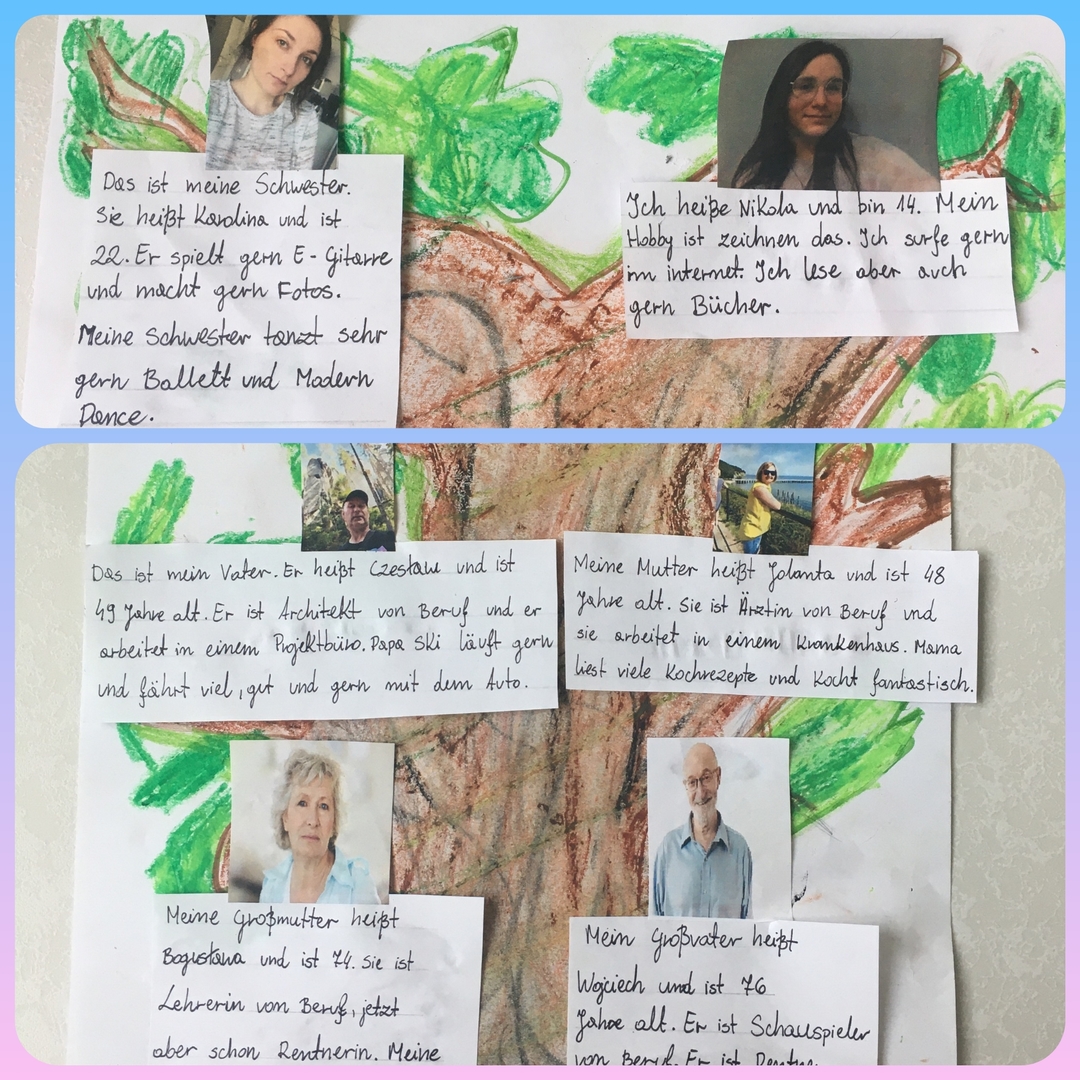 Das ist meine Schwester.
Sie heißt Karolina und ist
22. Er spielt gern E-Gitarre
und macht gern Fotos.
Meine Schwester tanzt sehr
gern Ballett und Modern
Dance.
Ich heiße Nikola und bin 14. Mein
Hobby ist zeichnen das. Ich surfe gern
im internet. Ich lese aber auch
gern Bücher.
Das ist mein Vater. Er heißt Czesław und ist
49 Jahre alt. Er ist Architekt von Beruf und er
arbeitet in einem Projektbüro. Papa Ski läuft gern
und fährt viel, gut und gern mit dem Auto.
Meine Mutter heißt Jolanta und ist 48
Jahre alt. Sie ist Ärztin von Beruf und
sie arbeitet in einem Krankenhaus. Mama
liest viele Kochrezepte und kocht fantastisch.
Meine Großmutter heißt
Bogusława und ist 74. Sie ist
Lehrerin von Beruf, jetzt
aber schon Rentnerin. Meine
Mein Großvater heißt
Wojciech und ist 76
Jahre alt. Er ist Schauspieler
von Beruf. Er ist